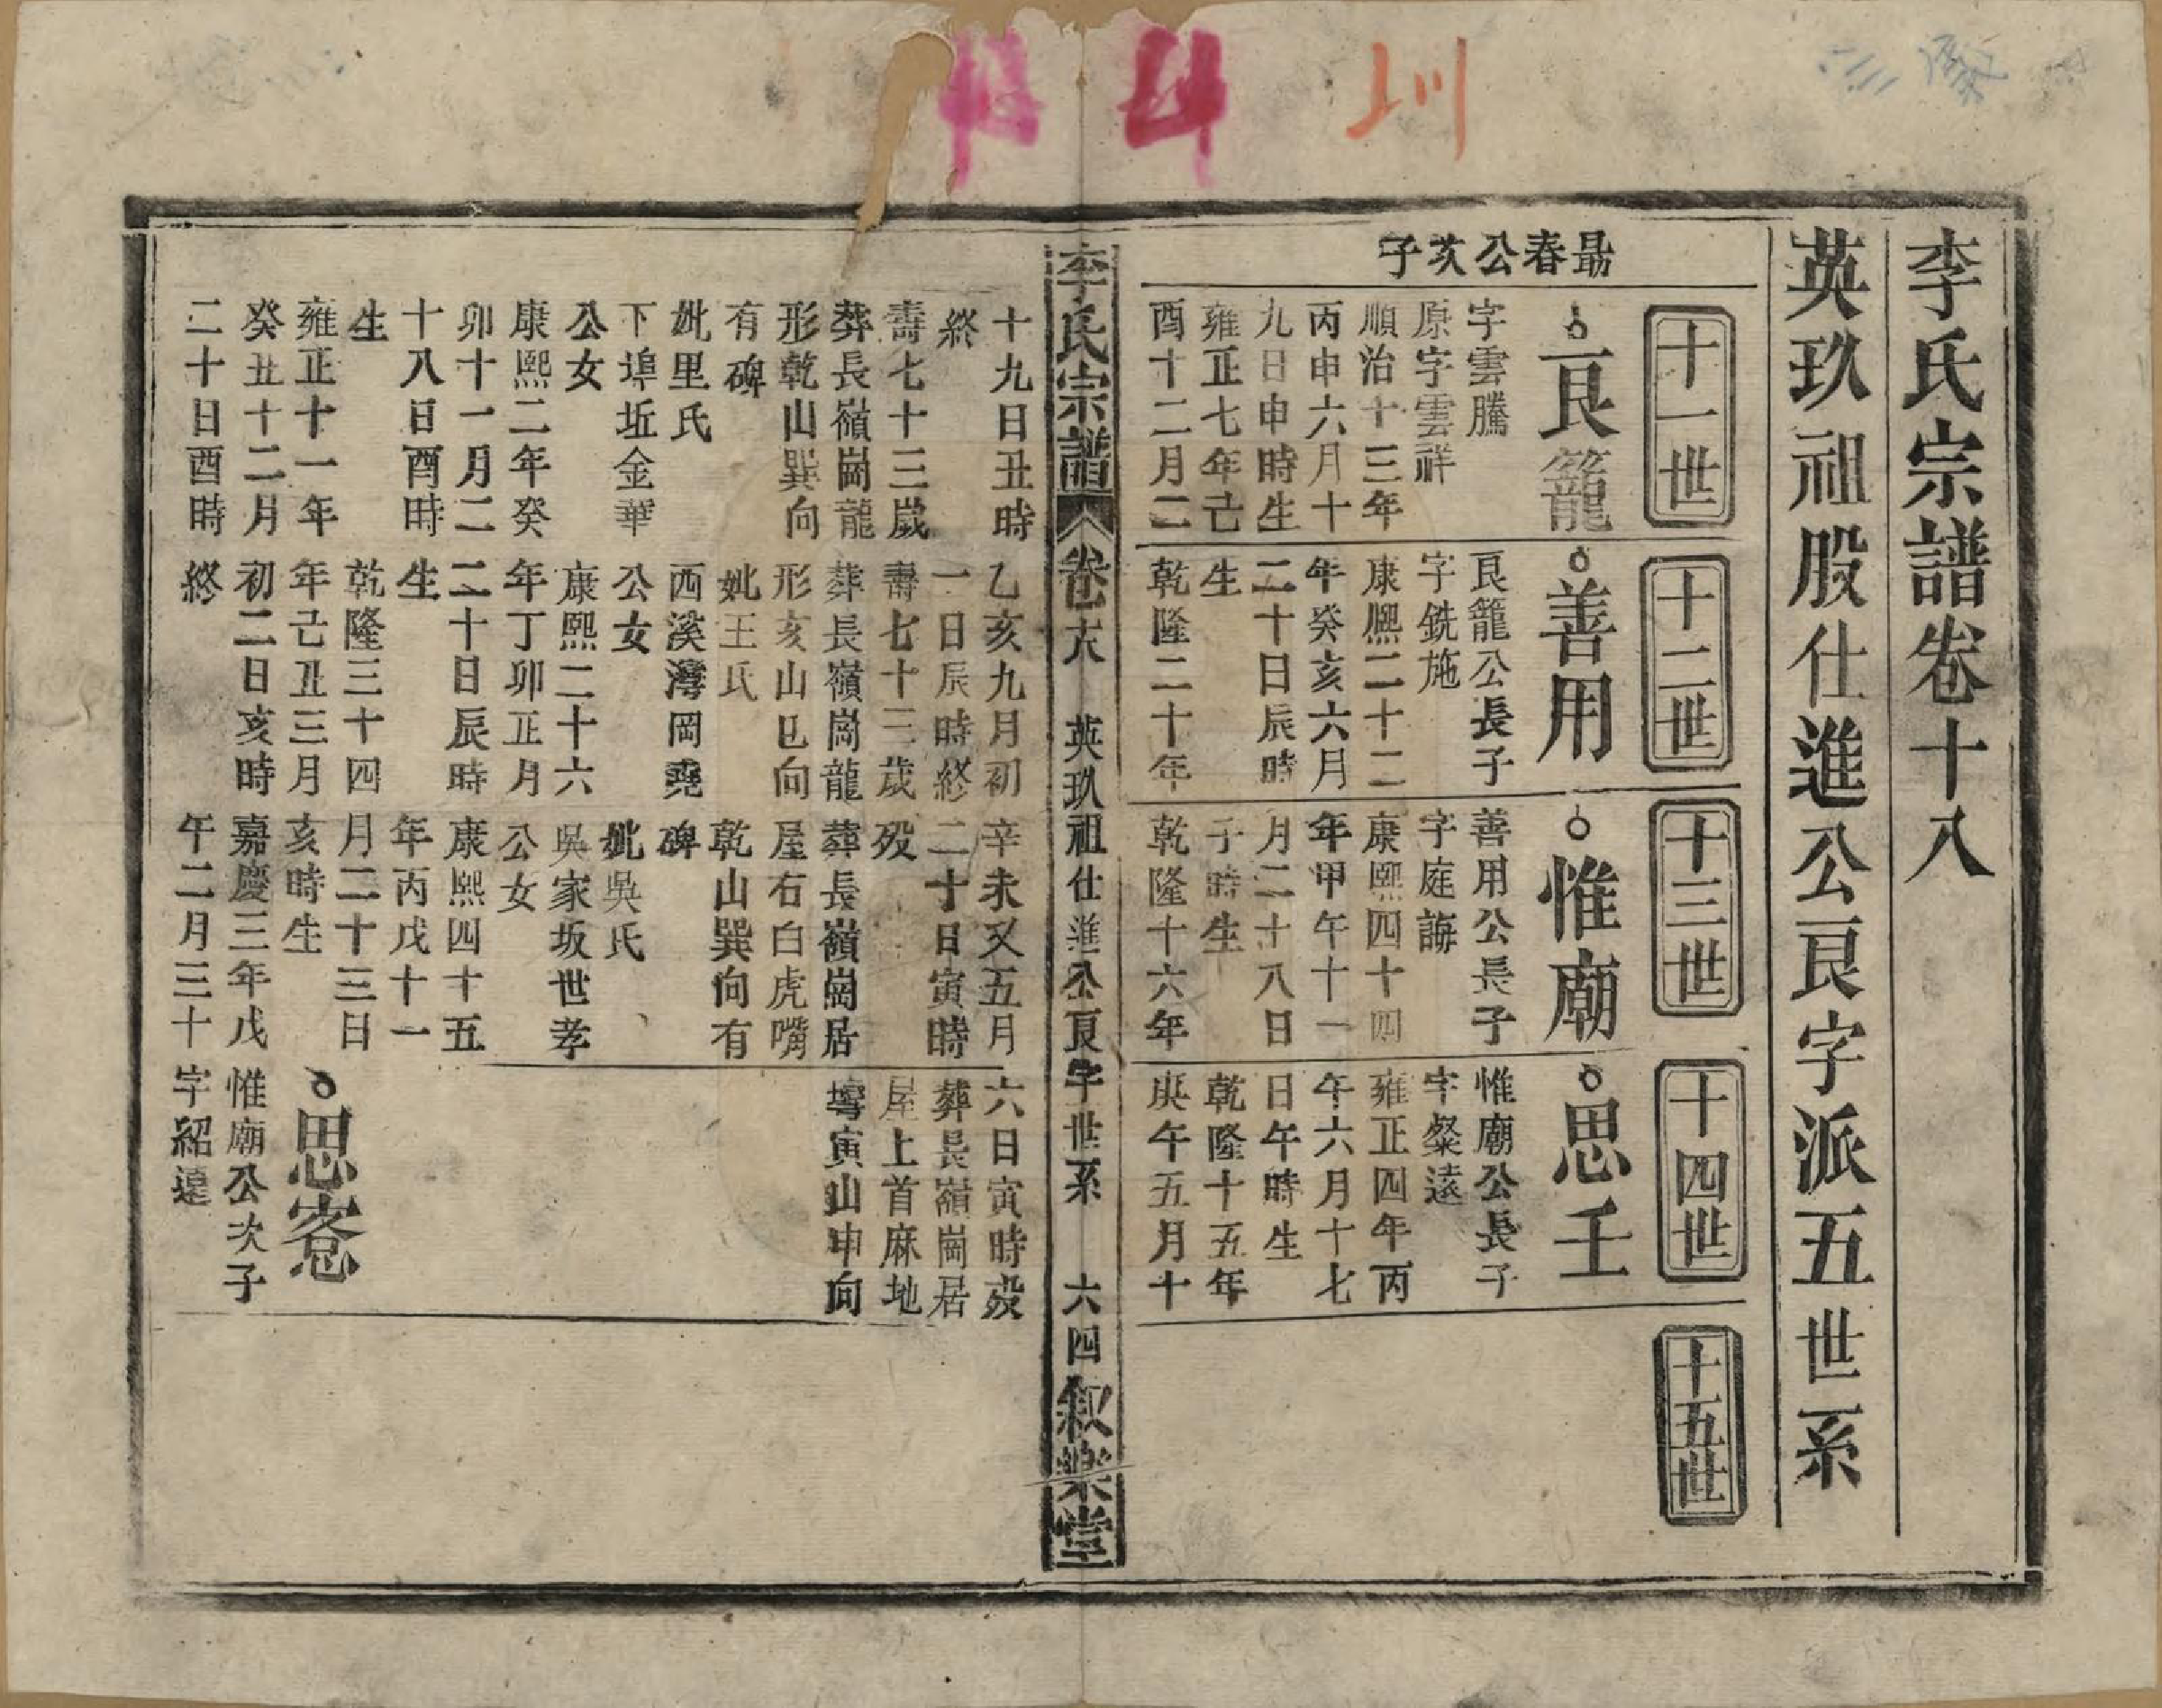 李氏宗譜卷十八
英玖祖股仕進公艮字派五世系
十一世
十二世
十三世
十四世
十五世
最春公次子
艮籠
字雲騰
原字雲祥
順治十三年
丙申六月十
九日申時生
雍正七年己
酉十二月二
十九日丑時
終
壽七十三歲
葬長嶺崗龍
形乾山巽向
有碑
妣里氏
下埠坵金華
公女
康熙二年癸
卯十一月二
十八日酉時
生
雍正十一年
癸丑十二月
二十日酉時
善用
艮籠公長子
字銑施
康熙二十二
年癸亥六月
二十日辰時
生
乾隆二十年
乙亥九月初
一日辰時終
壽七十三歲
葬長嶺崗龍
形亥山巳向
妣王氏
西溪灣岡堯
公女
康熙二十六
年丁卯正月
二十日辰時
生
乾隆三十四
年己丑三月
初二日亥時
終
惟廟
善用公長子
字庭誨
康熙四十四
年甲午十一
月二十八日
子時生
乾隆十六年
辛未又五月
二十日寅時
歿
葬長嶺崗居
屋右白虎嘴
乾山巽向有
碑
妣吳氏
吳家坂世孝
公女
康熙四十五
年丙戌十一
月二十三日
亥時生
嘉慶三年戊
午二月三十
思壬
惟廟公長子
字粲遠
雍正四年丙
午六月十七
日午時生
乾隆十五年
庚午五月十
六日寅時歿
葬長嶺崗居
屋上首麻地
塆寅山申向
思窓
惟廟公次子
字紹遠
李氏宗譜 卷十八 英玖祖仕進公艮字世系 六四 敘樂堂